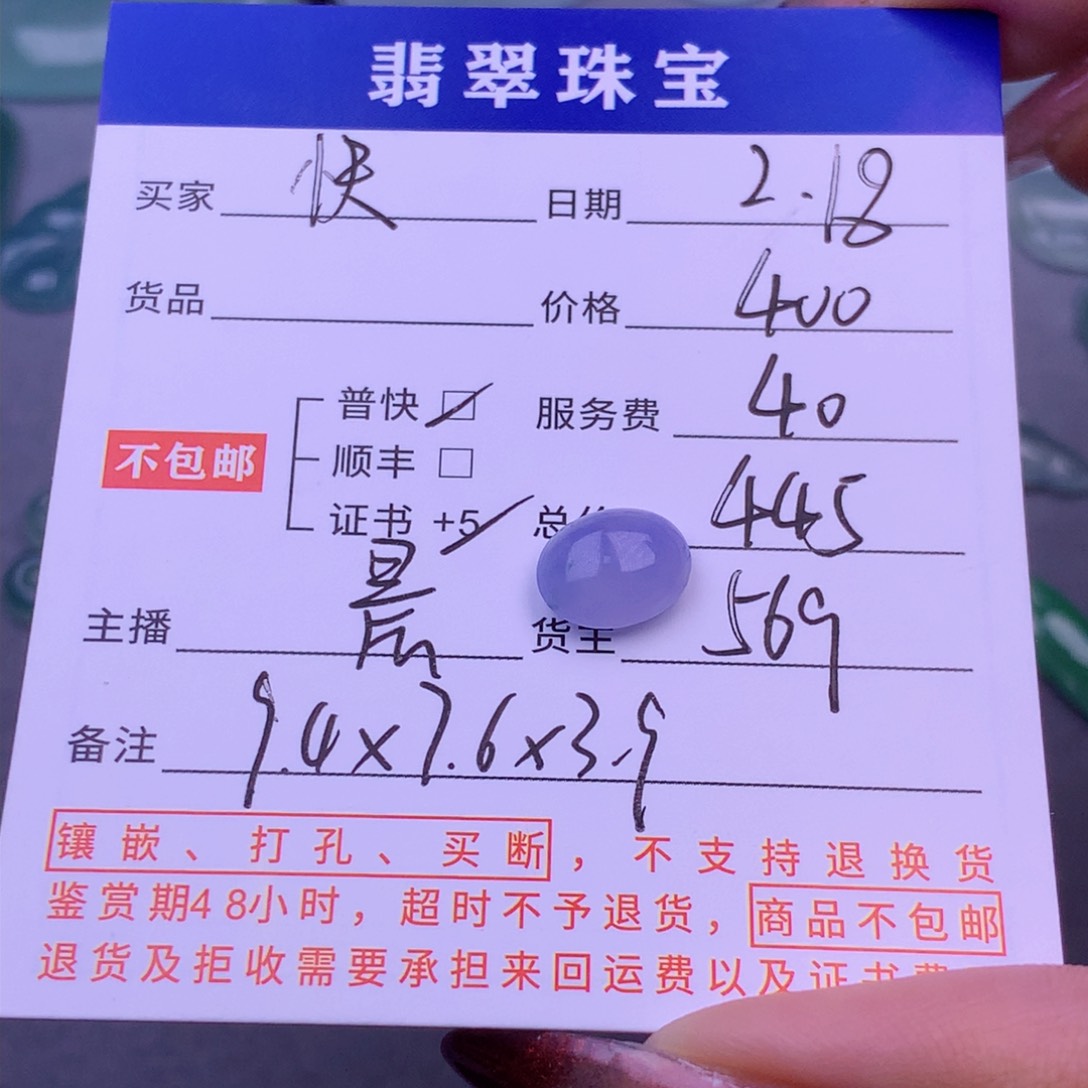 翡翠珠宝
买家 快 日期 2.18
货品 价格 400
普快 服务费 40
不包邮 顺丰
证书 +5 总 445
主播 晨 货主 569
备注 9.4x7.6x3.9
镶嵌、打孔、买断，不支持退换货
鉴赏期48小时，超时不予退货，商品不包邮
退货及拒收需要承担来回运费以及证书费